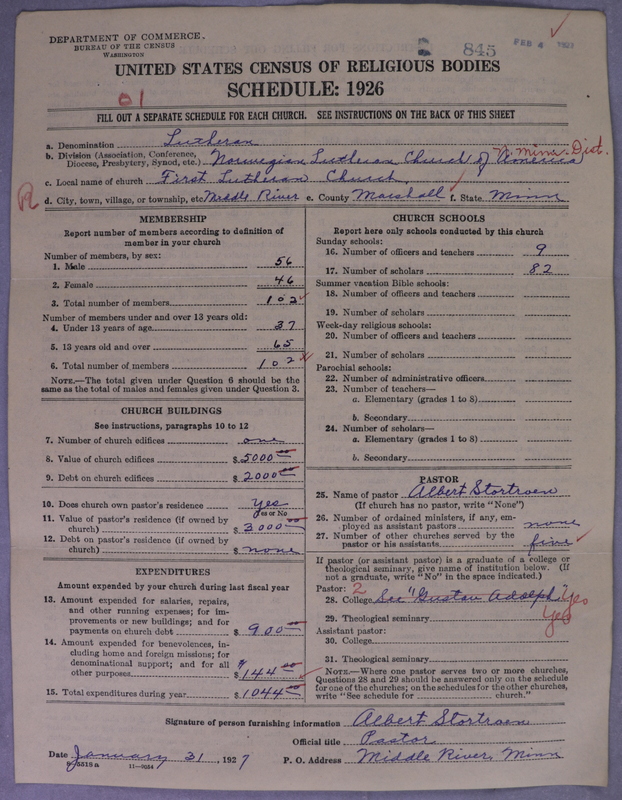 DEPARTMENT OF COMMERCE.
BUREAU OF THE CENSUS
WASHINGTON
845 FEB 4 1927
UNITED STATES CENSUS OF RELIGIOUS BODIES
SCHEDULE: 1926
01
FILL OUT A SEPARATE SCHEDULE FOR EACH CHURCH. SEE INSTRUCTIONS ON THE BACK OF THIS SHEET
a. Denomination Lutheran
b. Division (Association, Conference, Diocese, Presbytery, Synod, etc.) Norwegian Lutheran Church of America N. Minn. Dist.
c. Local name of church First Lutheran Church
R d. City, town, village, or township, etc Middle River e. County Marshall f. State Minn
MEMBERSHIP
Report number of members according to definition of
member in your church
Number of members, by sex:
1. Male 56
2. Female 46
3. Total number of members 102
Number of members under and over 13 years old:
4. Under 13 years of age 37
5. 13 years old and over 65
6. Total number of members 102
NOTE.—The total given under Question 6 should be the
same as the total of males and females given under Question 3.
CHURCH BUILDINGS
See instructions, paragraphs 10 to 12
7. Number of church edifices one
8. Value of church edifices $5000 00
9. Debt on church edifices $2000 00
10. Does church own pastor's residence Yes
Yes or No
11. Value of pastor's residence (if owned by
church) $3000 00
12. Debt on pastor's residence (if owned by
church) $ none
EXPENDITURES
Amount expended by your church during last fiscal year
13. Amount expended for salaries, repairs,
and other running expenses; for im-
provements or new buildings; and for
payments on church debt $ 900 00
14. Amount expended for benevolences, in-
cluding home and foreign missions; for
denominational support; and for all
other purposes $144 00
15. Total expenditures during year $1044 00
CHURCH SCHOOLS
Report here only schools conducted by this church
Sunday schools:
16. Number of officers and teachers 9
17. Number of scholars 82
Summer vacation Bible schools:
18. Number of officers and teachers
19. Number of scholars
Week-day religious schools:
20. Number of officers and teachers
21. Number of scholars
Parochial schools:
22. Number of administrative officers
23. Number of teachers—
a. Elementary (grades 1 to 8)
b. Secondary
24. Number of scholars—
a. Elementary (grades 1 to 8)
b. Secondary
PASTOR
25. Name of pastor Albert Stortroen
(If church has no pastor, write "None")
26. Number of ordained ministers, if any, em-
ployed as assistant pastors none
27. Number of other churches served by the
pastor or his assistants five
If pastor (or assistant pastor) is a graduate of a college or
theological seminary, give name of institution below. (If
not a graduate, write "No" in the space indicated.)
Pastor: 2
28. College See "Gustav Adolph" Yes
29. Theological seminary Yes
Assistant pastor:
30. College
31. Theological seminary
NOTE.—Where one pastor serves two or more churches,
Questions 28 and 29 should be answered only on the schedule
for one of the churches; on the schedules for the other churches,
write "See schedule for church."
Signature of person furnishing information Albert Stortroen
Official title Pastor
Date January 31, 1927 P. O. Address Middle River, Minn
11—8684